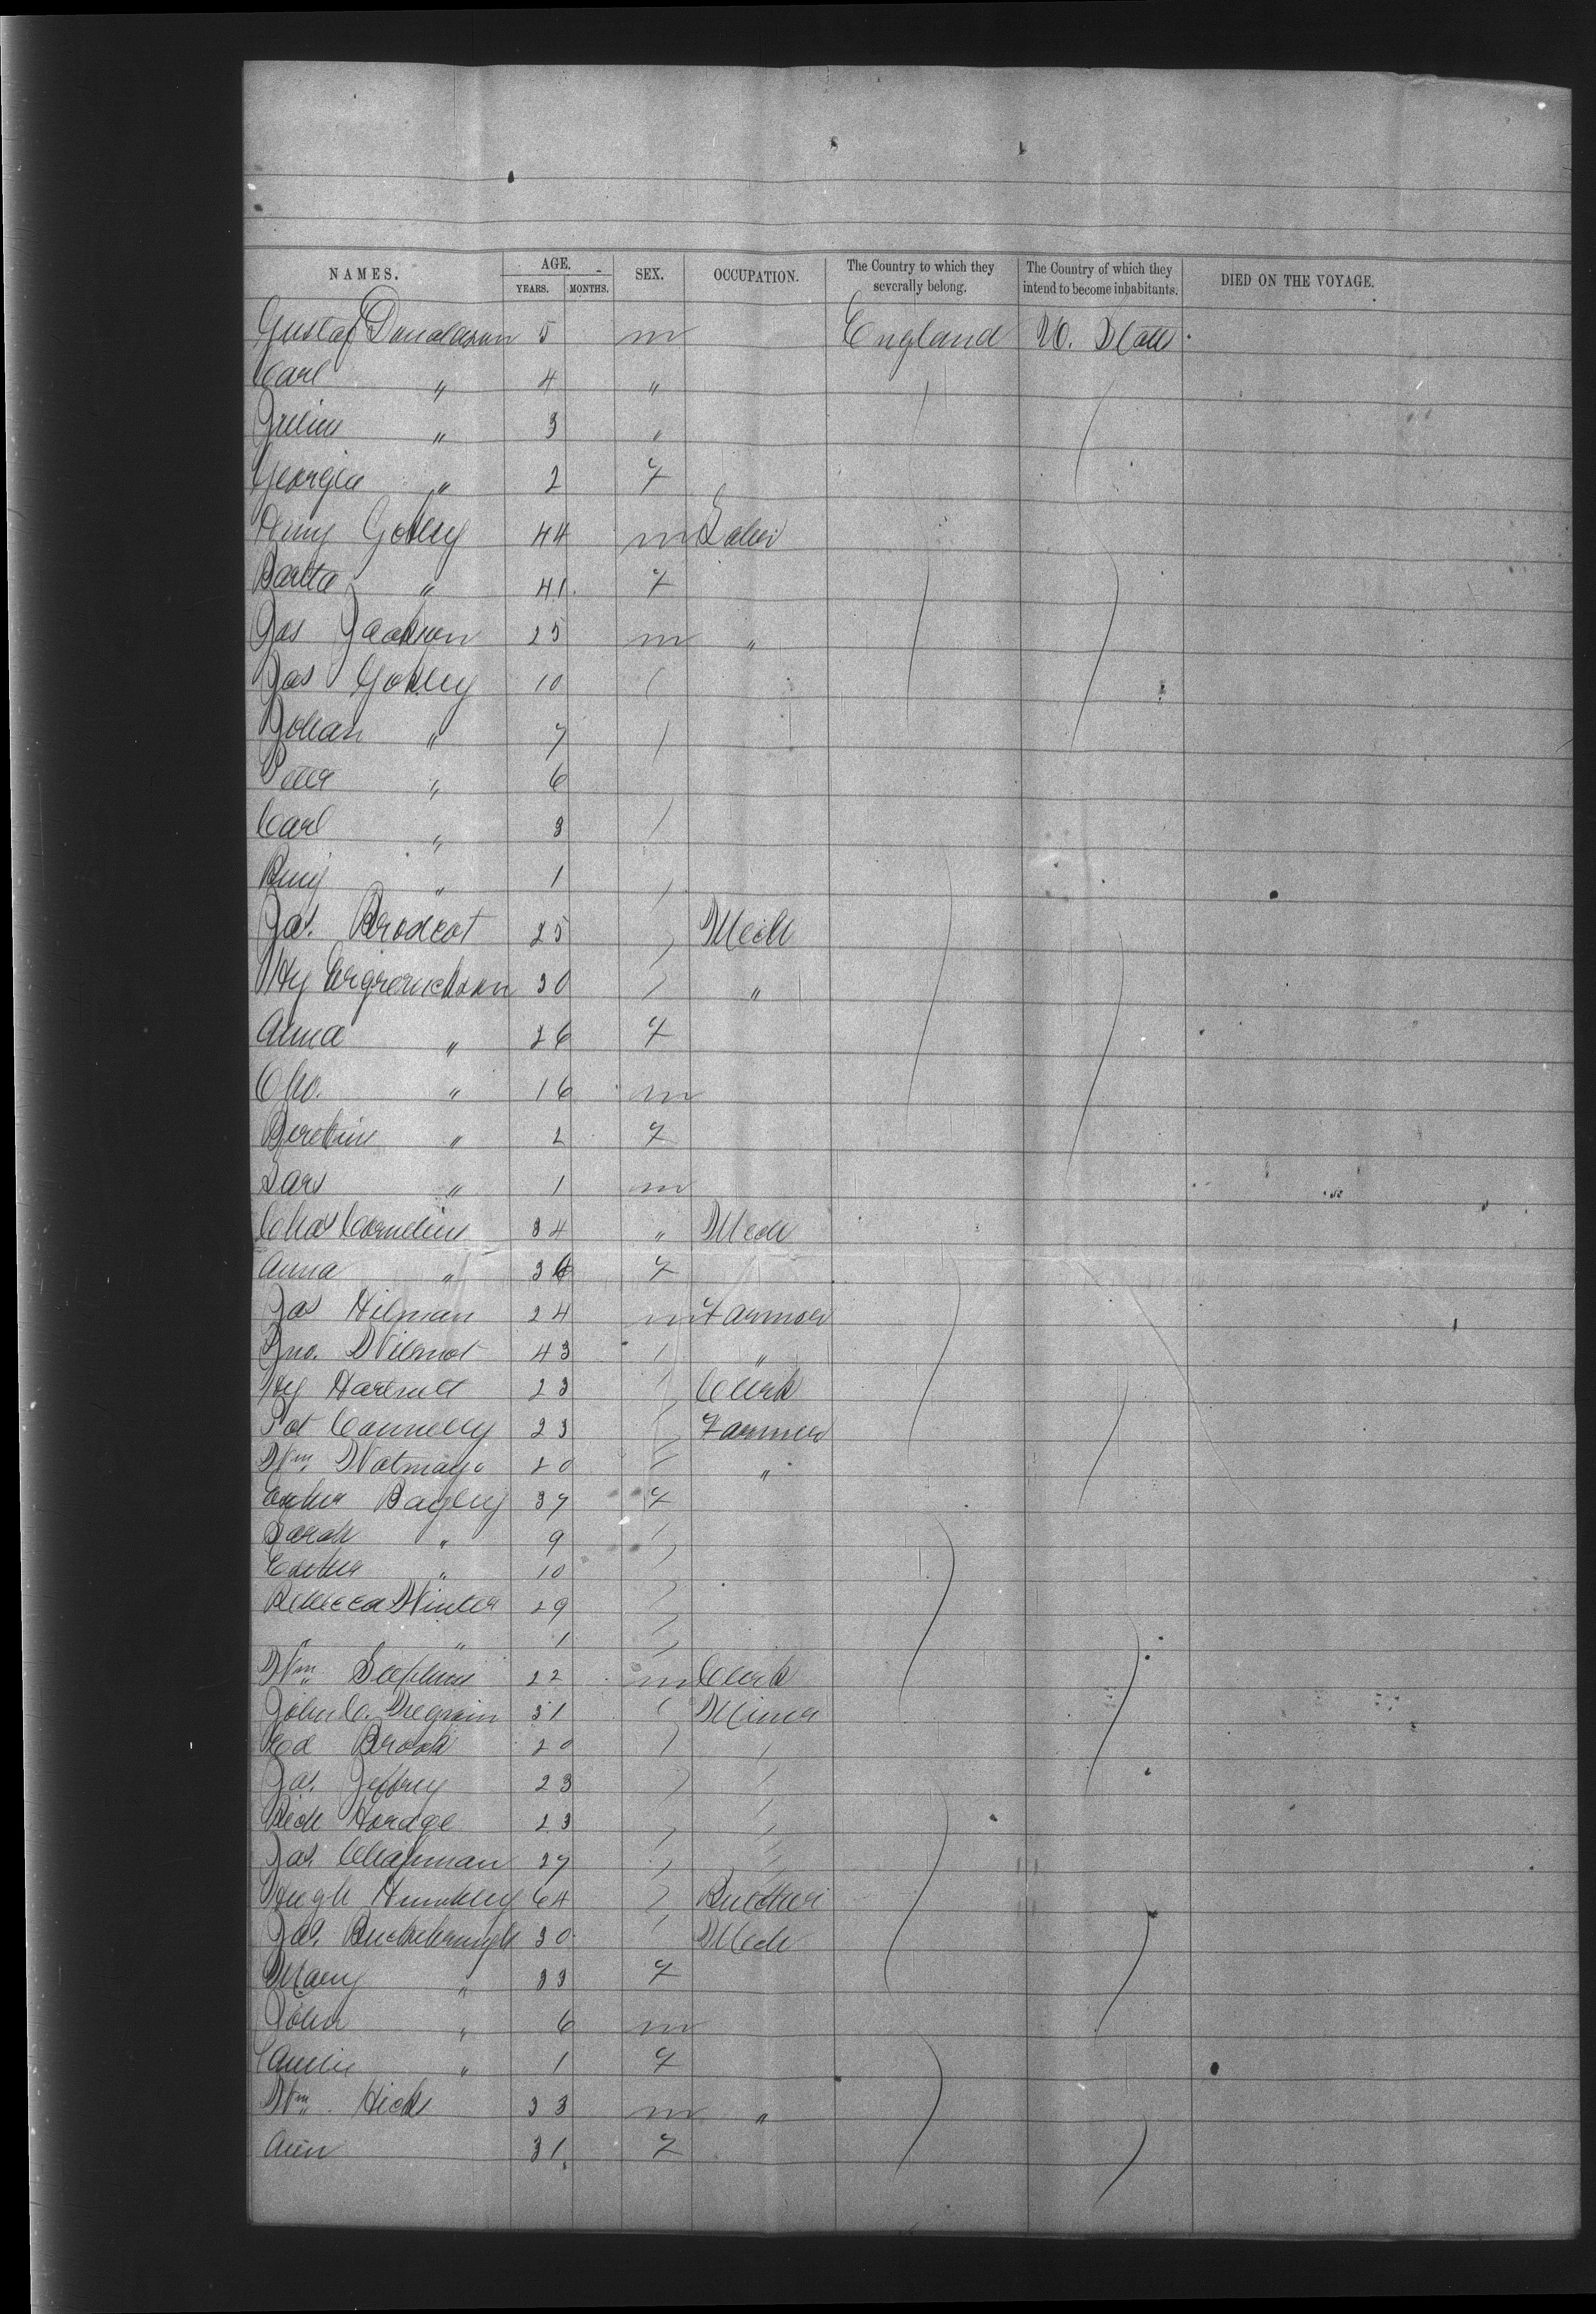 NAMES. AGE. SEX. OCCUPATION. The Country to which they severally belong. The Country of which they intend to become inhabitants. DIED ON THE VOYAGE.
YEARS. MONTHS.
Gustaf Donaldson 5 m England U. States
Carl " 4 "
Julius " 3 "
Georgia " 2 F
Henry 44 m Labor
" 41 F
Jas Jackson 25 m "
Jas 10
Johan " 7
Peter " 6
Carl " 3
Benj " 1
Jas. 25 Mech
Hy 30 "
Anna " 26 F
Chs. " 16 m
" 2 F
Lars " 1 m
Chas Cornelius 34 " Mech
Anna " 34 F
Jas Hilman 24 m Farmer
Jno. Wilmot 43 "
Hy 23 Clerk
Pat Connelly 23 Farmer
Wm 20 "
Esther Bagley 37 F
Sarah " 9
Esther " 10
Rebecca Winter 29
" " 1
Wm Stephens 22 m Clerk
John C. 31 Miner
Ed Brook 20
Jas. Jeffrey 23
Rich Hordge 23
Jas. Chapman 27
Hugh 64 Butcher
Jas. 30 Mech
Mary " 33 F
John " 6 m
" 1 F
Wm Hicks 33 m "
Ann 31 F